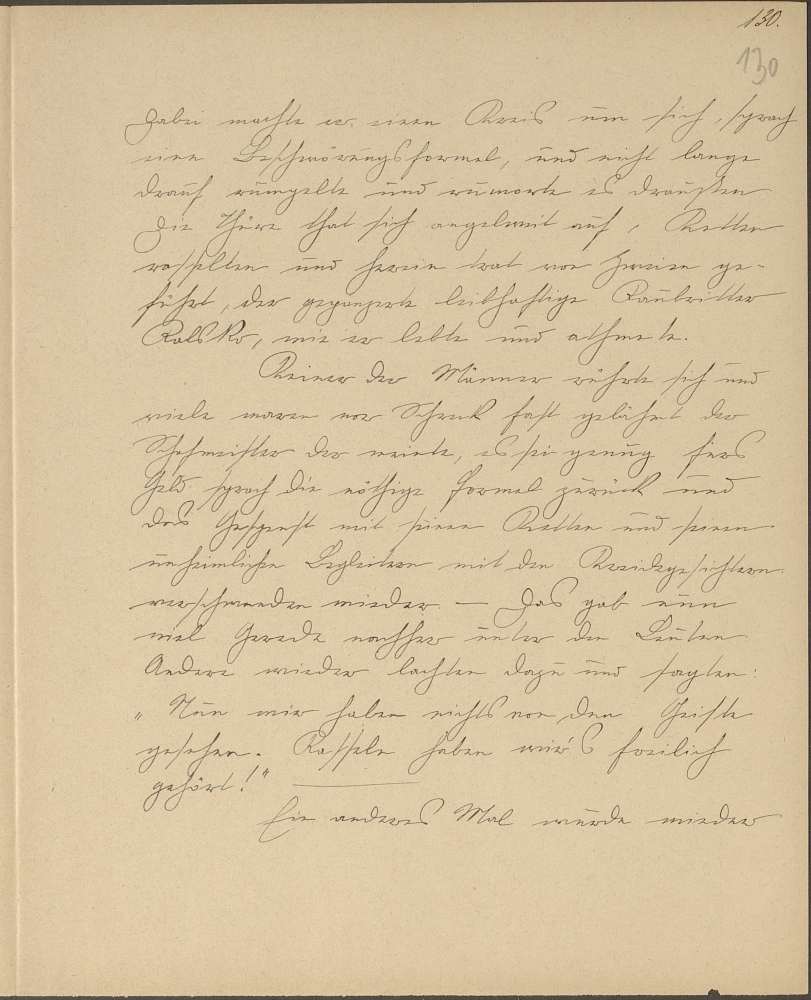 130.
130
Dabei machte er einen Kreis um sich, sprach
eine Beschwörungsformel, und nicht lange
drauf rumpelte und rumorte es draußen
Die Thüre that sich angelweit auf, Ketten
rasselten und herein trat von Zweien ge-
führt, der gepanzerte leibhaftige Raubritter
Ralsko, wie er lebte und athmete.
Keiner der Männer rührte sich und
viele waren vor Schreck fast gelähmt der
der meinte, es sei genug fürs
Geld sprach die nöthige Formel zurück und
das Gespenst mit seinen Ketten und seinen
unheimlichen Begleitern mit den Kreidegesichtern
verschwanden wieder. — Das gab nun
viel Gerede nachher unter den Leuten
Andere wieder lachten dazu und sagten:
„Nun wir haben nichts von den Geiste
gesehen. Rasseln haben wir's freilich
gehört!"
Ein anderes Mal wurde wieder